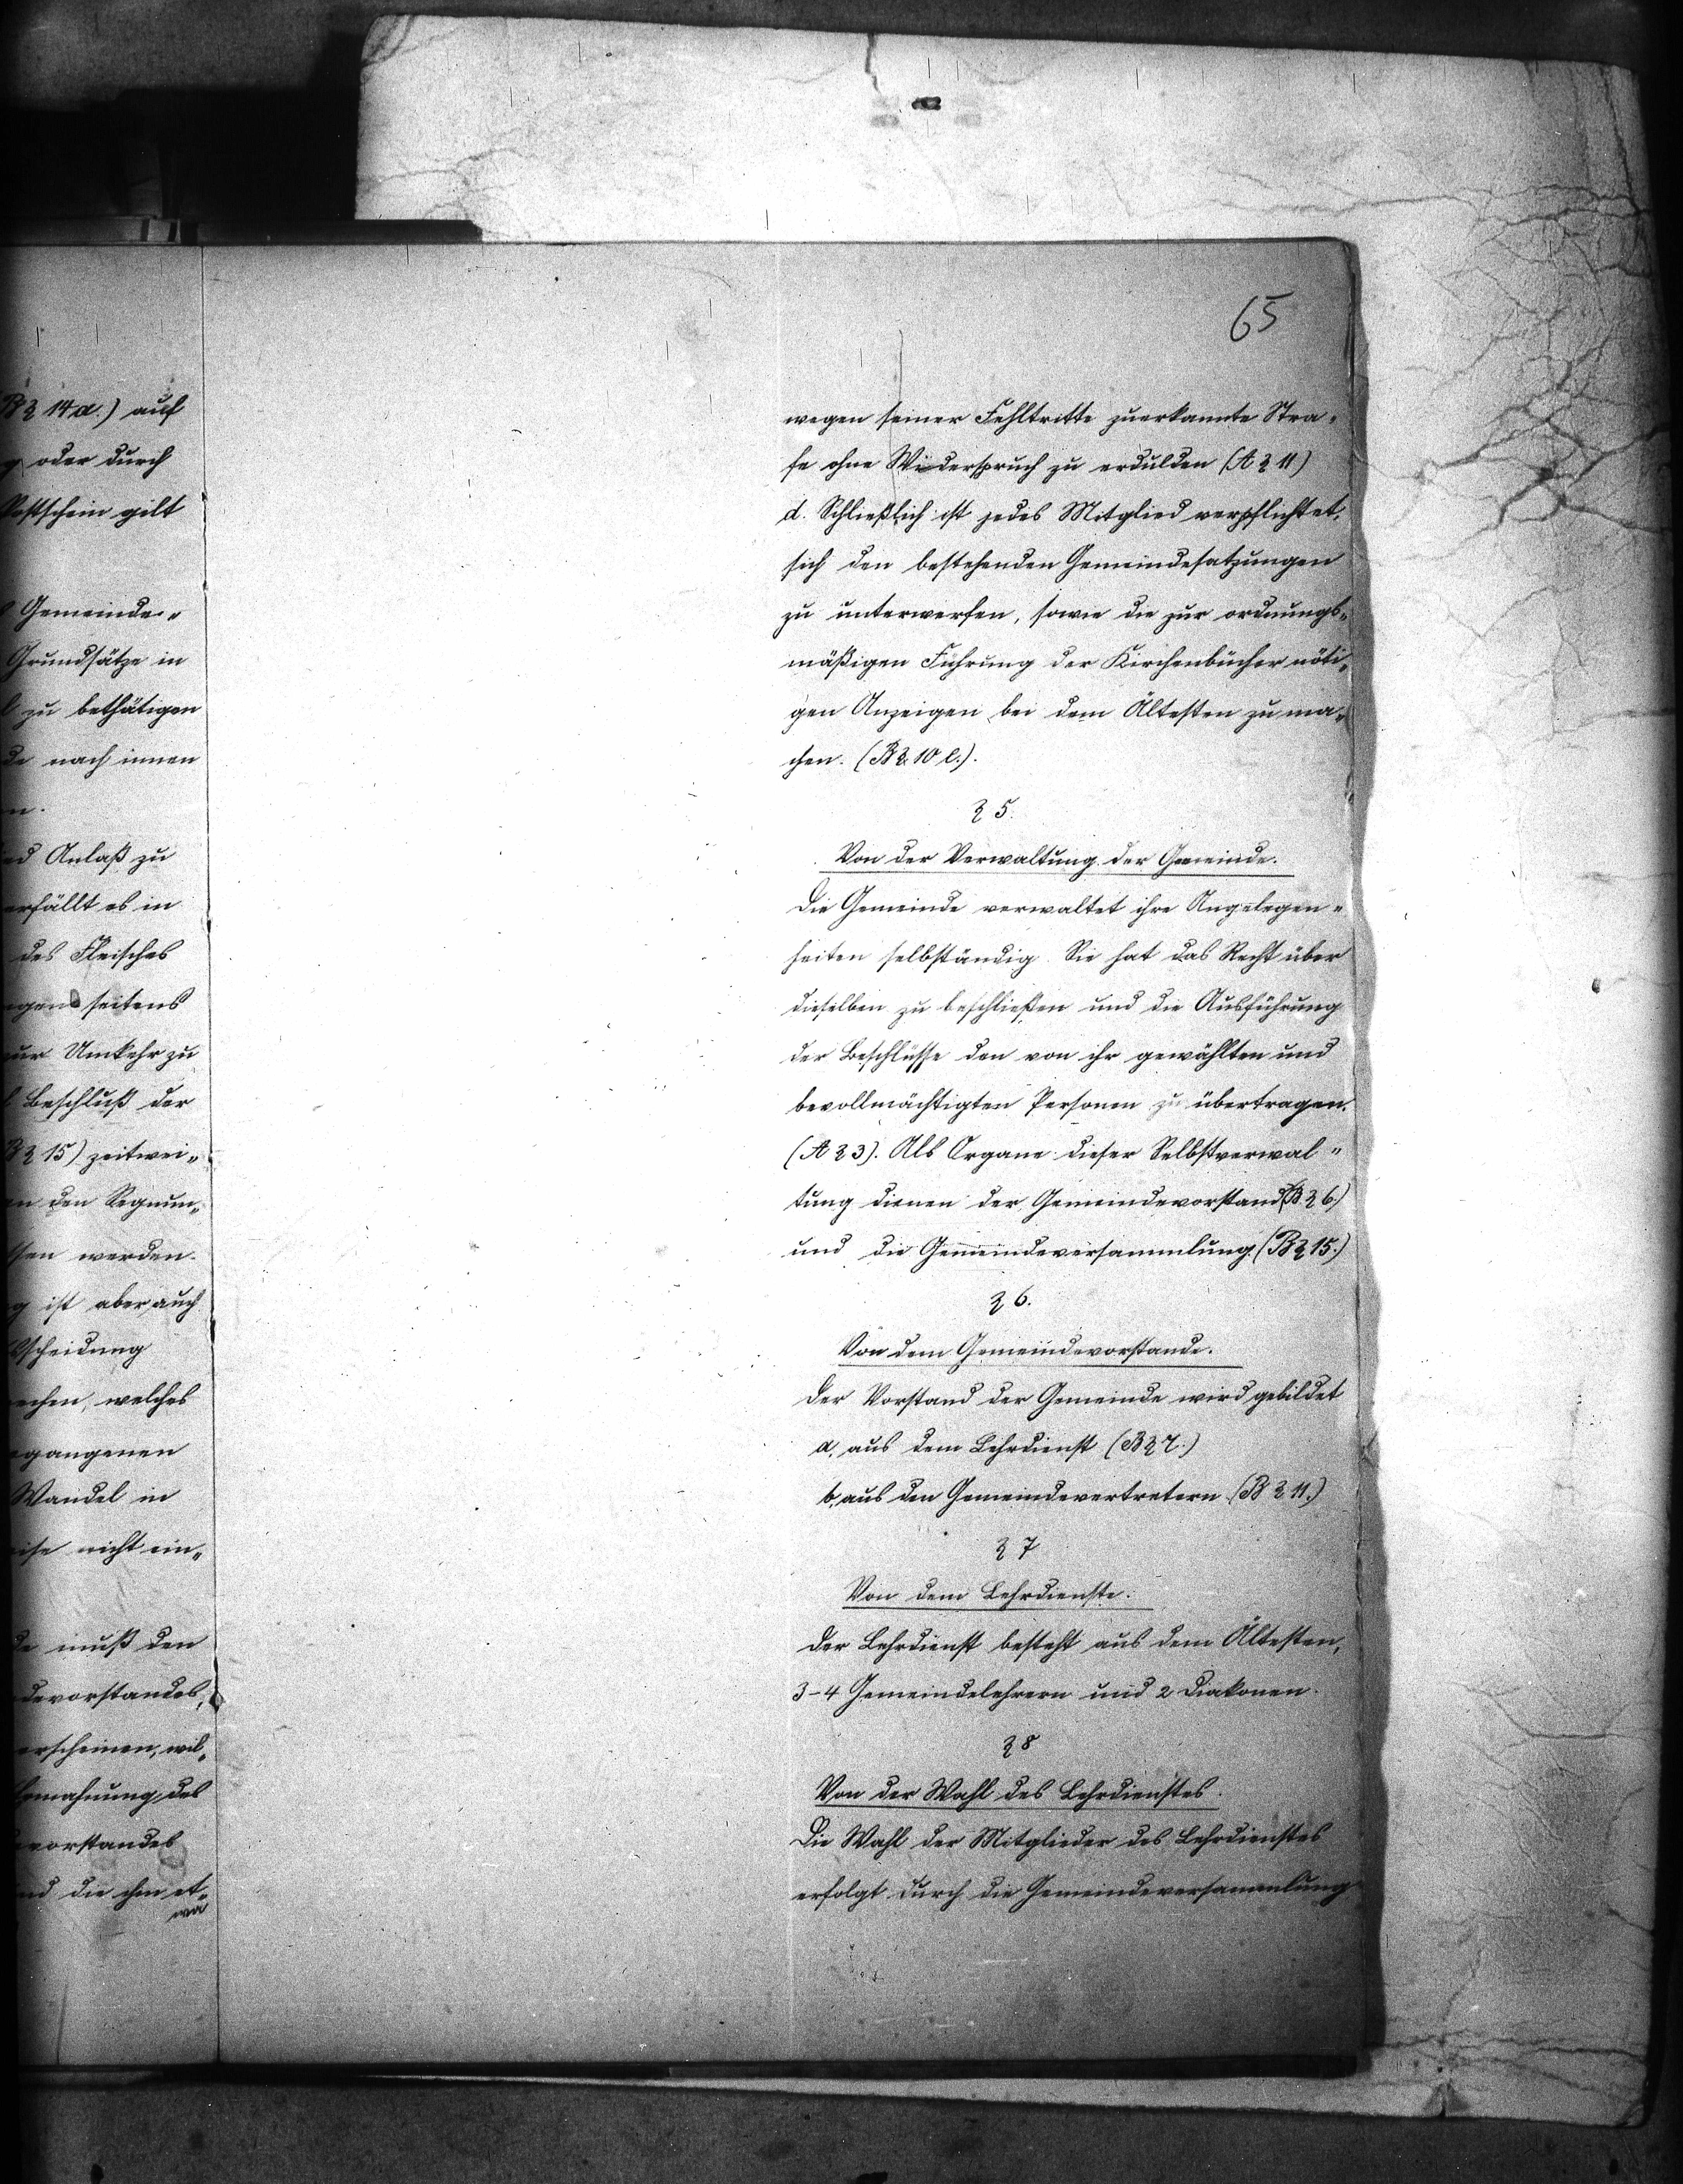 B § 14a.) auf
oder durch
Postschein gilt
Gemeinde-
Grundsätze in
zu bethätigen
nach innen
Anlaß zu
erfällt es in
des Fleisches
seitens
zur Umkehr zu
Beschluß der
B § 15) zeitwei-
an den Segnun-
werden.
ist aber auch
welches
Wandel in
nicht ein-
muß den
erscheinen, wil-
des
die ihm et-
wa
65
wegen seiner Fehltritte zuerkannte Stra-
fe ohne Widerspruch zu erdulden (A § 11)
d. Schließlich ist jedes Mitglied verpflichtet,
sich den bestehenden Gemeindesatzungen
zu unterwerfen, sowie die zur ordnungs-
mäßigen Führung der Kirchenbücher nöti-
gen Anzeigen bei dem Ältesten zu ma-
chen. (B § 10 l.).
§ 5.
Von der Verwaltung der Gemeinde.
Die Gemeinde verwaltet ihre Angelegen-
heiten selbständig. Sie hat das Recht über
dieselben zu beschließen und die Ausführung
der Beschlüsse den von ihr gewählten und
bevollmächtigten Personen zu übertragen.
(A § 3). Als Organe dieser Selbstverwal-
tung dienen der Gemeindevorstand (B § 6.)
und die Gemeindeversammlung. (B § 15.)
§ 6.
Von dem Gemeindevorstande.
Der Vorstand der Gemeinde wird gebildet
a, aus dem Lehrdienst (B § 7.)
b, aus den Gemeindevertretern (B § 11.)
§ 7
Von dem Lehrdienste.
Der Lehrdienst besteht aus dem Ältesten,
3-4 Gemeindelehrern und 2 Diakonen.
§ 8
Von der Wahl des Lehrdienstes.
Die Wahl der Mitglieder des Lehrdienstes
erfolgt durch die Gemeindeversammlung